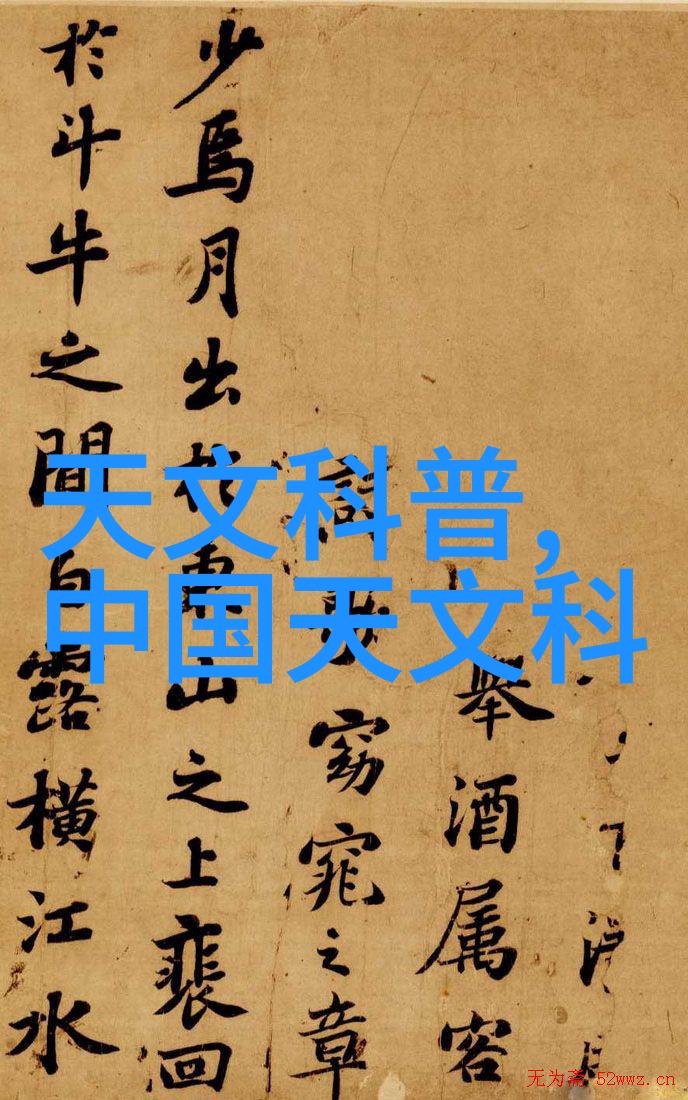 天文科普,
中国天文科
舉酒属客
窈窕之章
少焉月出於東山之上裴回
於斗牛之間白露橫江水
无为斋 52wwz.cn